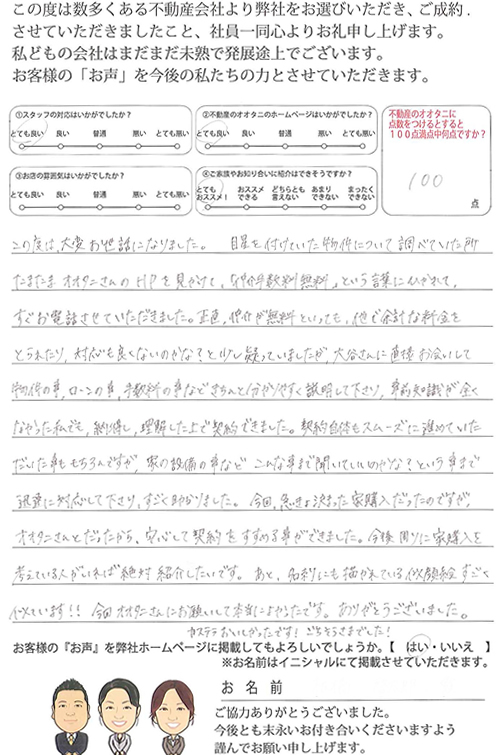 この度は数多くある不動産会社より弊社をお選びいただき、ご成約.
させていただきましたこと、社員一同心よりお礼申し上げます。
私どもの会社はまだまだ未熟で発展途上でございます。
お客様の「お声」を今後の私たちの力とさせていただきます。
①スタッフの対応はいかがでしたか?
とても良い 良い 普通 悪い とても悪い
②不動産のオオタニのホームページはいかがですか?
とても良い 良い 普通 悪い とても悪い
③お店の雰囲気はいかがでしたか?
とても良い 良い 普通 悪い とても悪い
④ご家族やお知り合いに紹介はできそうですか?
とてもおススメ! おススメできる どちらとも言えない あまりできない まったくできない
不動産のオオタニに
点数をつけるとすると
100点満点中何点ですか?
100
点
この度は、大変お世話になりました。 目星を付けていた物件について調べていた所
たまたまオオタニさんのHPを見かけて、「仲介手数料無料」という言葉にひかれて、
すぐお電話させていただきました。正直、仲介が無料といっても、他で余計な料金を
とられたり、対応も良くないのかな?と少し疑っていましたが、大谷さんに直接お会いして
物件の事、ローンの事、手数料の事などきちんと分かりやすく説明して下さり、事前知識が全く
なかった私でも、納得し、理解した上で契約できました。契約自体もスムーズに進めていた
だいた事ももちろんですが、家の設備の事など こんな事まで聞いていいのかな?という事まで
迅速に対応して下さり、すごく助かりました。 今回、急きょ決まった家購入だったのですが、
オオタニさんとだったから、安心して契約をすすめる事ができました。今後周りに家購入を
考えている人がいれば絶対紹介したいです。 あと、名刺にも描かれている似顔絵すごく
似ています!! 今回オオタニさんにお願いして本当によかったです。ありがとうございました。
カステラおいしかったです!ごちそうさまでした!
お客様の『お声』を弊社ホームページに掲載してもよろしいでしょうか。【 はい・いいえ 】
※お名前はイニシャルにて掲載させていただきます。
お 名 前
ご協力ありがとうございました。
今後とも末永いお付き合いくださいますよう
謹んでお願い申し上げます。